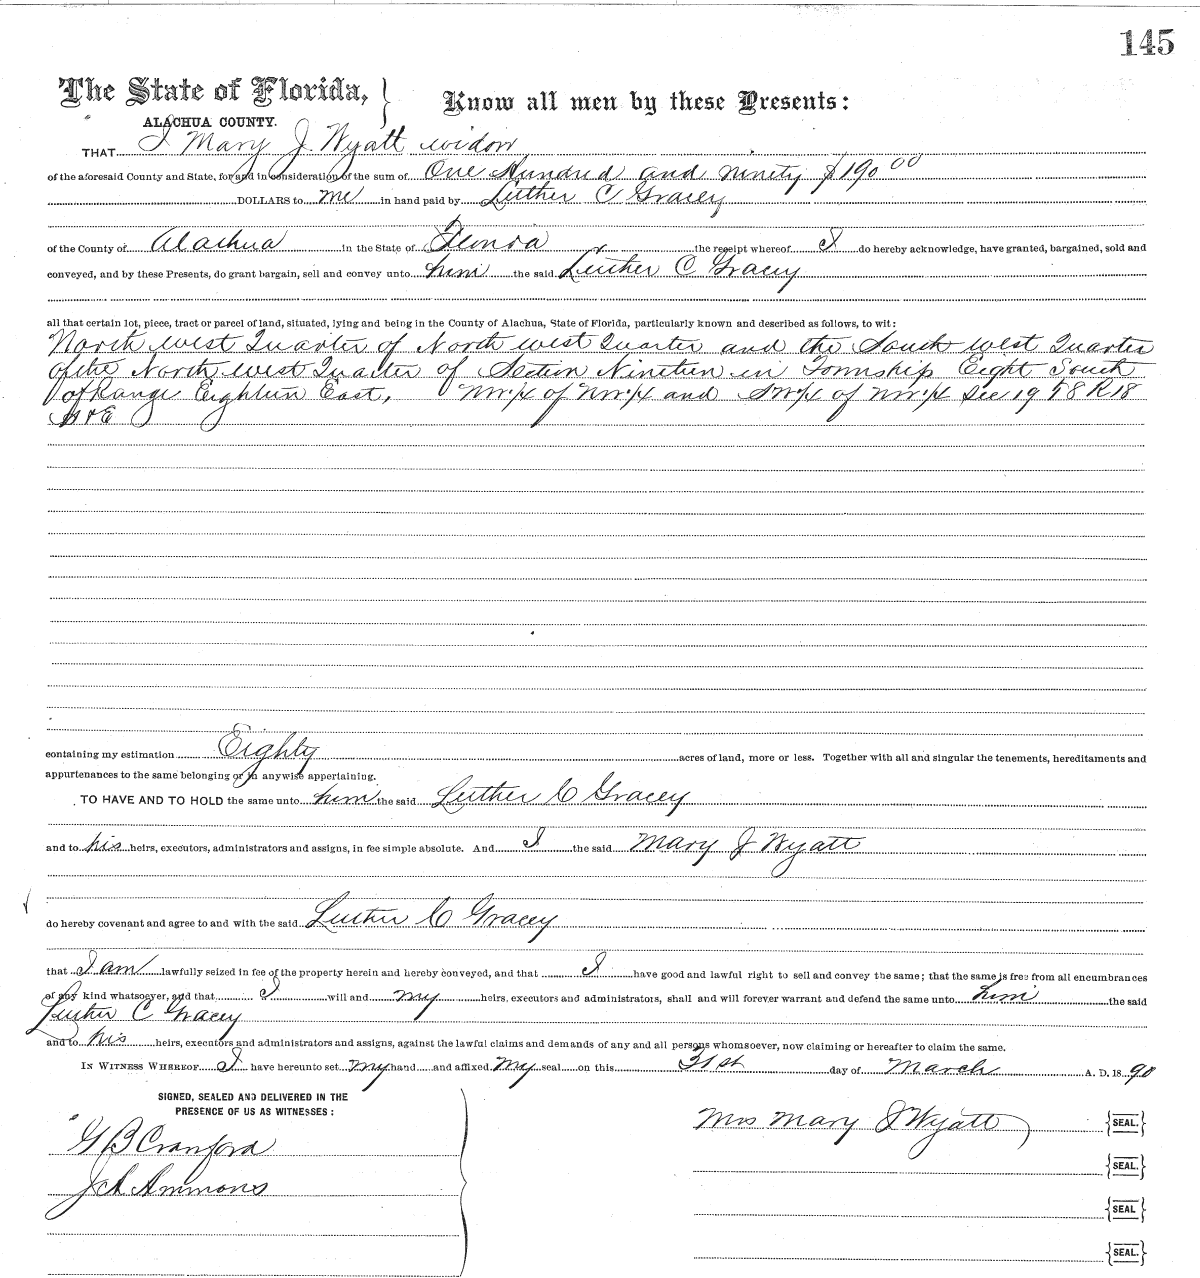 145
The State of Florida, } Know all men by these Presents:
ALACHUA COUNTY.
THAT I Mary J. Wyatt widow
of the aforesaid County and State, for and in consideration of the sum of One Hundred and ninity $190 00
DOLLARS to me in hand paid by Luther C Gracey
of the County of Alachua in the State of Florida the receipt whereof I do hereby acknowledge, have granted, bargained, sold and
conveyed, and by these Presents, do grant bargain, sell and convey unto him the said Luther C Gracey
all that certain lot, piece, tract or parcel of land, situated, lying and being in the County of Alachua, State of Florida, particularly known and described as follows, to wit:
North west Quarter of North west Quarter and the South west Quarter
of the North west Quarter of Section Nineteen in Township Eight South
of Range Eighteen East, NW 1/4 of NW 1/4 and SW 1/4 of NW 1/4 Sec 19 T 8 R 18
S & E
containing my estimation Eighty acres of land, more or less. Together with all and singular the tenements, hereditaments and
appurtenances to the same belonging or in anywise appertaining.
TO HAVE AND TO HOLD the same unto him the said Luther C Gracey
and to his heirs, executors, administrators and assigns, in fee simple absolute. And I the said Mary J Wyatt
do hereby covenant and agree to and with the said Luther C Gracey
that I am lawfully seized in fee of the property herein and hereby conveyed, and that I have good and lawful right to sell and convey the same; that the same is free from all encumbrances
of any kind whatsoever, and that I will and my heirs, executors and administrators, shall and will forever warrant and defend the same unto him the said
Luther C Gracey
and to his heirs, executors and administrators and assigns, against the lawful claims and demands of any and all persons whomsoever, now claiming or hereafter to claim the same.
IN WITNESS WHEREOF I have hereunto set my hand and affixed my seal on this 31st day of March A. D. 18 90
SIGNED, SEALED AND DELIVERED IN THE
PRESENCE OF US AS WITNESSES:
G B Cranford
J A Ammons
Mrs Mary J Wyatt {SEAL.}
{SEAL.}
{SEAL}
{SEAL.}